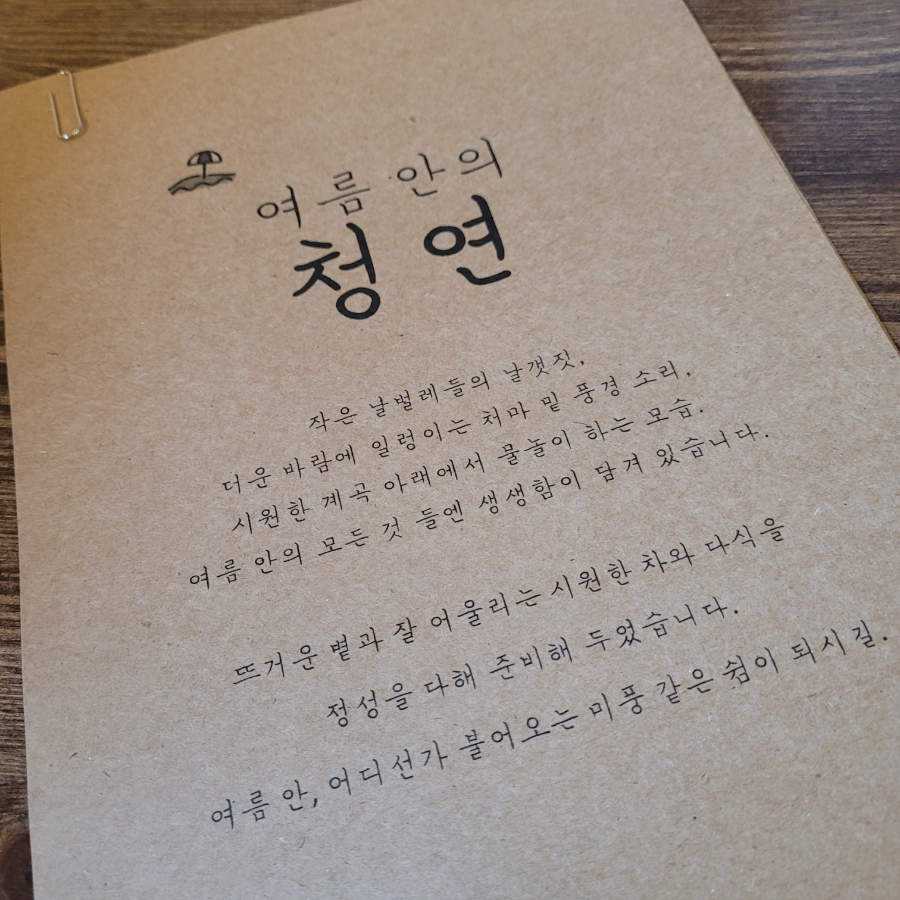 여름 안의
청연
작은 날벌레들의 날갯짓,
더운 바람에 일렁이는 처마 밑 풍경 소리,
시원한 계곡 아래에서 물놀이 하는 모습.
여름 안의 모든 것 들엔 생생함이 담겨 있습니다.
뜨거운 볕과 잘 어울리는 시원한 차와 다식을
정성을 다해 준비해 두었습니다.
여름 안, 어디선가 불어오는 미풍 같은 쉼이 되시길.